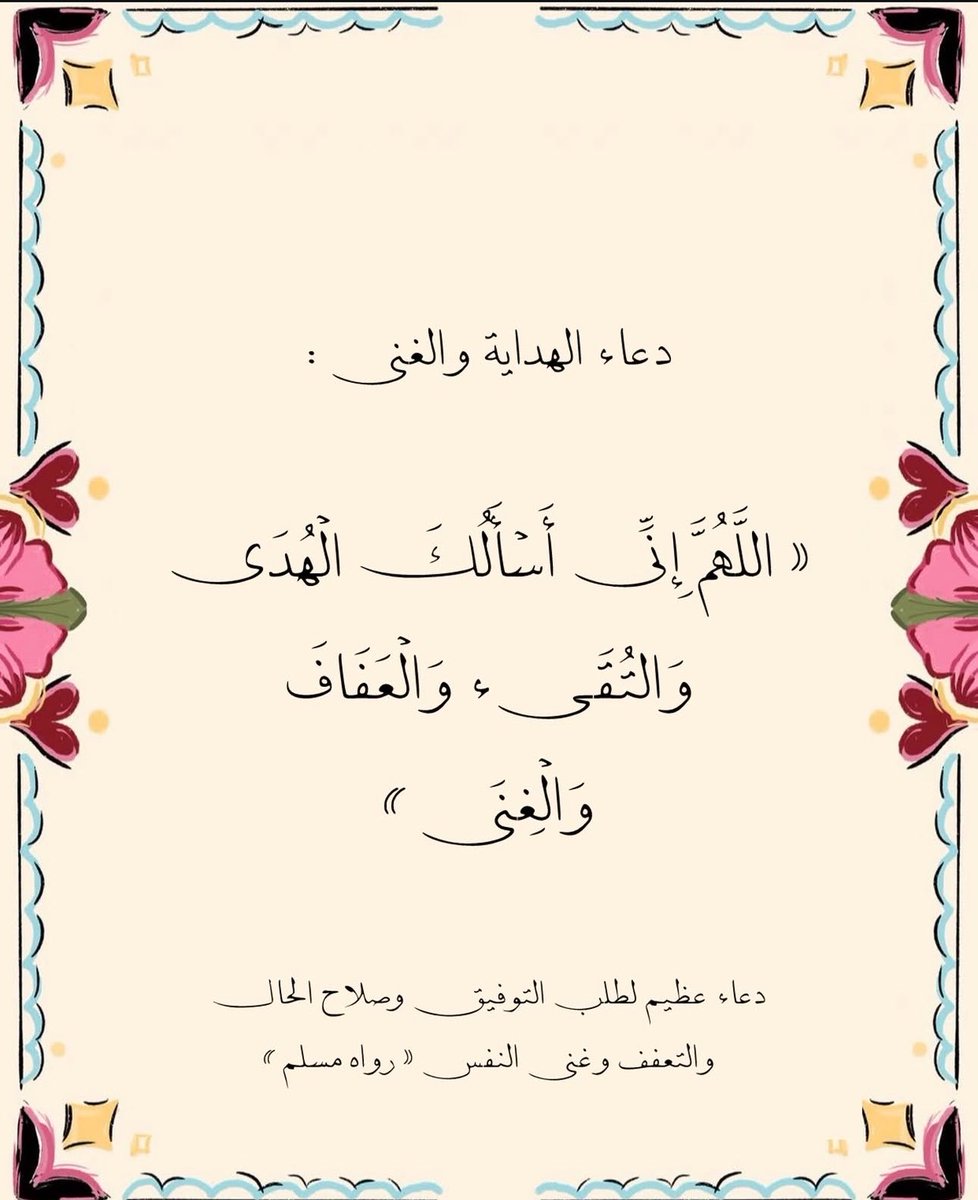 دعاء الهداية والغنى :
« اللَّهُمَّ إِنِّي أَسْأَلُكَ الْهُدَى
وَالتُّقَى ء وَالْعَفَافَ
وَالْغِنَى »
دعاء عظيم لطلب التوفيق وصلاح الحال
والتعفف وغنى النفس « رواه مسلم »